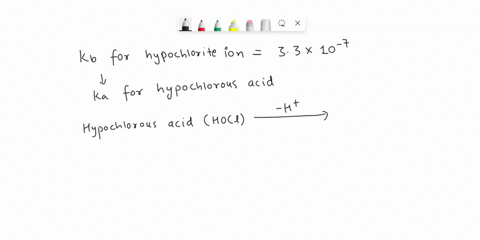 Kb for hypochlorite ion = 3.3 × 10⁻⁷
↓
Ka for hypochlorous acid
Hypochlorous acid (HOCl) —−H⁺→